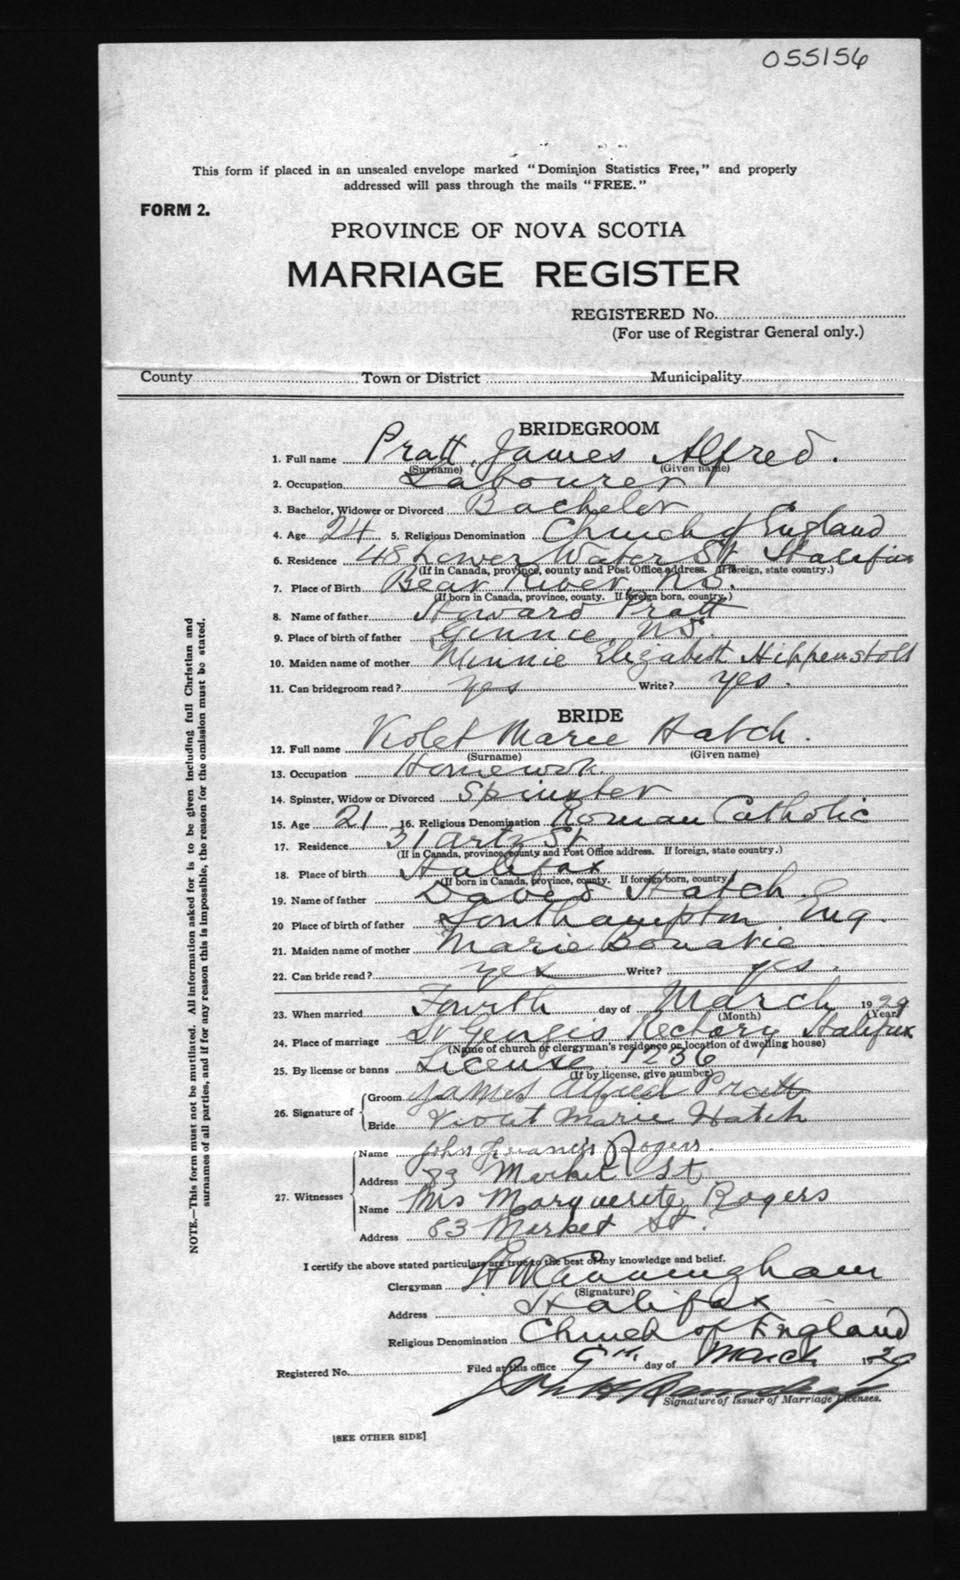 055156
This form if placed in an unsealed envelope marked "Dominion Statistics Free," and properly
addressed will pass through the mails "FREE."
FORM 2.
PROVINCE OF NOVA SCOTIA
MARRIAGE REGISTER
REGISTERED No.
(For use of Registrar General only.)
County Town or District Municipality
BRIDEGROOM
1. Full name Pratt James Alfred.
(Surname) (Given name)
2. Occupation Labourer
3. Bachelor, Widower or Divorced Bachelor
4. Age 24 5. Religious Denomination Church of England
6. Residence 48 Lower Water St Halifax
(If in Canada, province, county and Post Office address. If foreign, state country.)
7. Place of Birth Bear River, N.S.
(If born in Canada, province, county. If foreign born, country.)
8. Name of father Howard Pratt
9. Place of birth of father N.S.
10. Maiden name of mother Minnie Elizabeth
11. Can bridegroom read? yes Write? yes.
BRIDE
12. Full name Violet Marie Hatch.
(Surname) (Given name)
13. Occupation
14. Spinster, Widow or Divorced Spinster
15. Age 21 16. Religious Denomination Roman Catholic
17. Residence 31 Artz St.
(If in Canada, province, county and Post Office address. If foreign, state country.)
18. Place of birth Halifax
(If born in Canada, province, county. If foreign born, country.)
19. Name of father David Hatch.
20 Place of birth of father Southampton Eng.
21. Maiden name of mother Marie
22. Can bride read? yes Write? yes.
23. When married Fourth day of March 1929
(Month) (Year)
24. Place of marriage St Georges Rectory Halifax
(Name of church or clergyman's residence or location of dwelling house)
25. By license or banns License 1236
(If by license, give number)
26. Signature of Groom James Alfred Pratt
Bride Violet Marie Hatch
27. Witnesses
Name John Francis Rogers.
Address 83 Market St
Name Mrs Marguerite Rogers
Address 83 Market St.
I certify the above stated particulars are true to the best of my knowledge and belief.
Clergyman H W Cunningham
(Signature)
Address Halifax
Religious Denomination Church of England
Registered No. Filed at this office 9th. day of March 1929
Signature of Issuer of Marriage Licenses.
[SEE OTHER SIDE]
NOTE.—This form must not be mutilated. All information asked for is to be given including full Christian and
surnames of all parties, and if for any reason this is impossible, the reason for the omission must be stated.